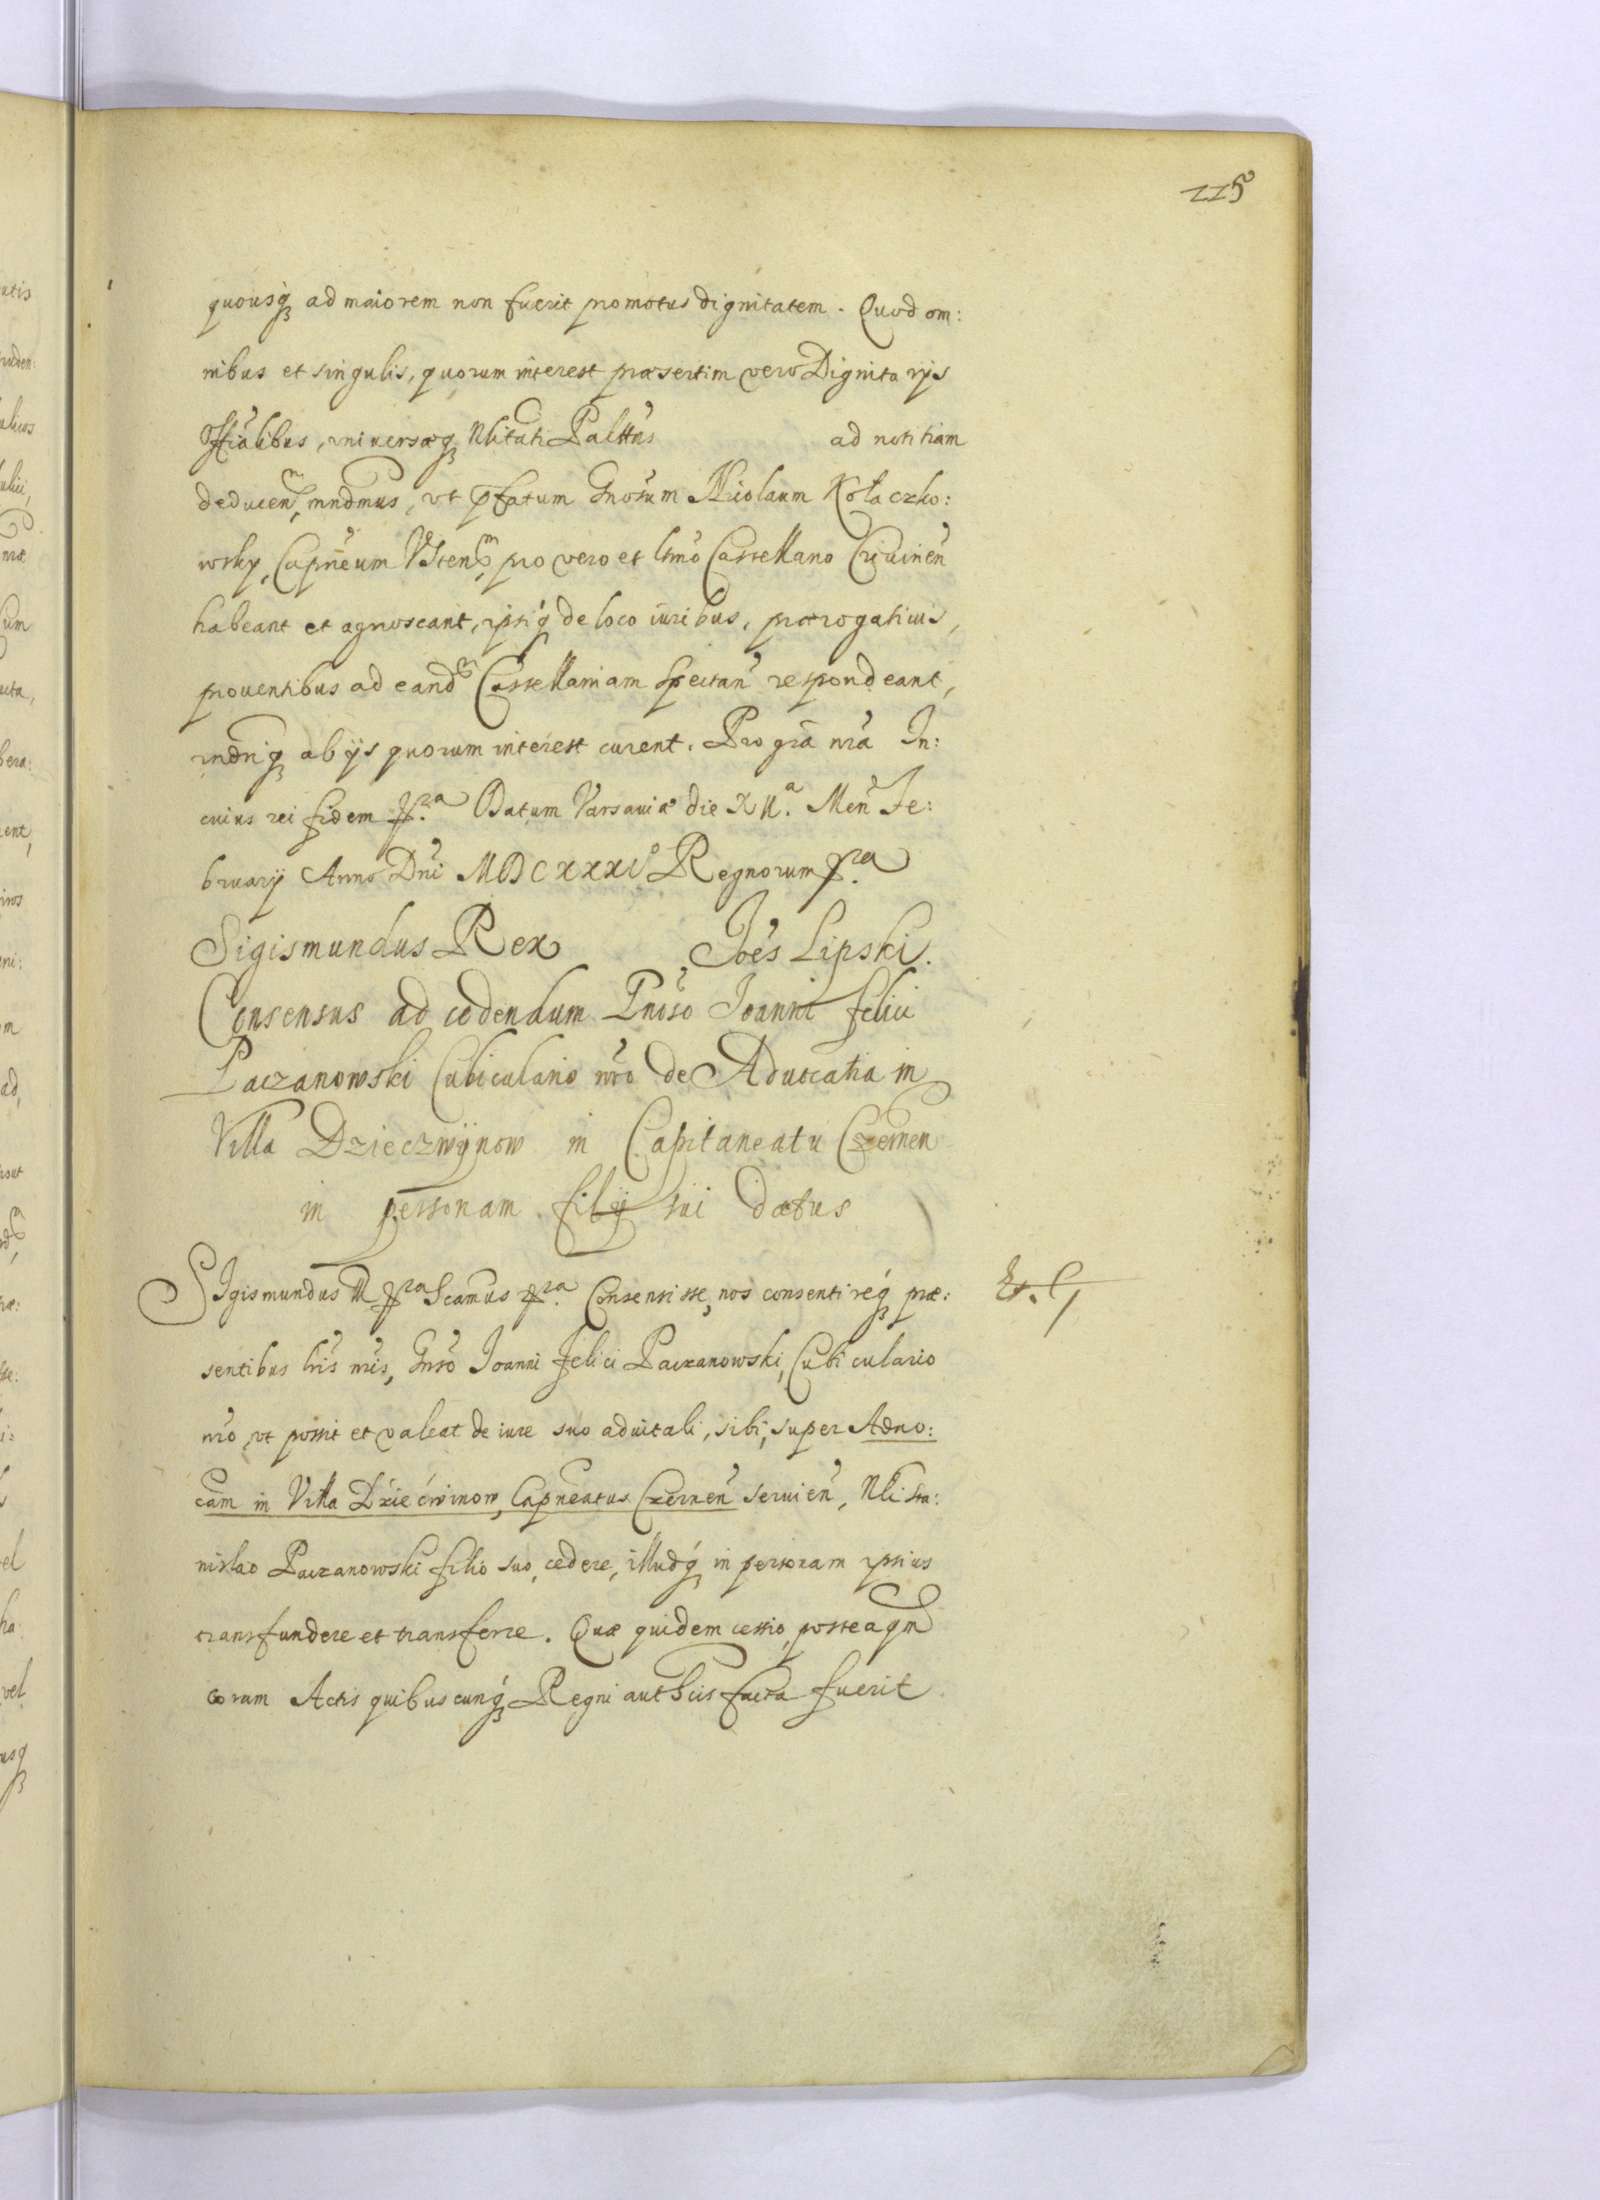 115
quousq ad maiorem non fuerit promotus dignitatem. Quod om:
nibus et singulis, quorum interest præsertim vero Dignitarÿs
Offialibus, vniversæq Nlitati Palttus ad notitiam
deducen, mndmus, vt pfatum Gnosum Nicolaum Kołaczko:
wsky, Capneum Vsten, pro vero et ltmo Castellano Criuinen
habeant et agnoscant, ipsiq de loco iuribus, prærogatiuis,
prouentibus ad eand Castellaniam spectan respondeant,
rnderiq ab ijs quorum interest curent. Pro gra nra In:
cuius rei fidem pra Datum Varsauiæ die XII a. Men Fe:
bruarÿ Anno Dni MDCXXXI Regnorum pra
Sigismundus Rex Joes Lipski.
Consensus ad cedendum Gnoso Joanni Felici
Paczanowski Cubiculario nro de Aduocatia in
Villa Dzieczwÿnow in Capitaneatu Czernen
in personam filÿ sui datus
SIgismundus III pra Scamus pra Consensisse, nos consentireq præ:
sentibus lris nris, Gnso Joanni Felici Paczanowski, Cubiculario
nro, vt possit et valeat de iure suo aduitali, sibi, super Aduo:
cam in Villa Dziećwinow, Capneatus Czernen seruien, Nli Sta:
nislao Paczanowski filio suo, cedere, illudq in personam ipsius
transfundere et transferre. Quæ quidem cessio, posteaqm
coram Actis quibuscunq Regni authcis facta fuerit